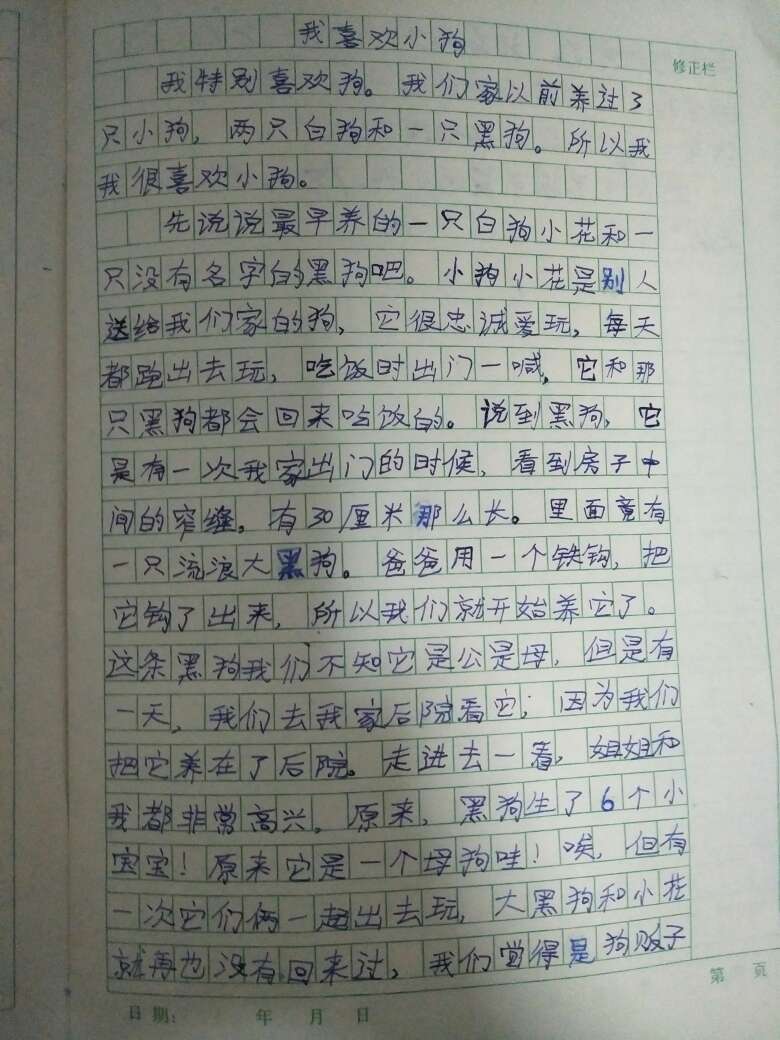 我喜欢小狗
修正栏
我特别喜欢狗。我们家以前养过3
只小狗，两只白狗和一只黑狗。所以我
我很喜欢小狗。
先说说最早养的一只白狗小花和一
只没有名字的黑狗吧。小狗小花是别人
送给我们家的狗，它很忠诚爱玩，每天
都跑出去玩，吃饭时出门一喊，它和那
只黑狗都会回来吃饭的。说到黑狗，它
是有一次我家出门的时候，看到房子中
间的窄缝，有30厘米那么长。里面竟有
一只流浪大黑狗。爸爸用一个铁钩，把
它钩了出来，所以我们就开始养它了。
这条黑狗我们不知它是公是母，但是有
一天，我们去我家后院看它；因为我们
把它养在了后院。走进去一看，姐姐和
我都非常高兴，原来，黑狗生了6个小
宝宝！原来它是一个母狗哇！唉，但有
一次它们俩一起出去玩，大黑狗和小花
就再也没有回来过，我们觉得是狗贩子
第 页
日期： 年 月 日